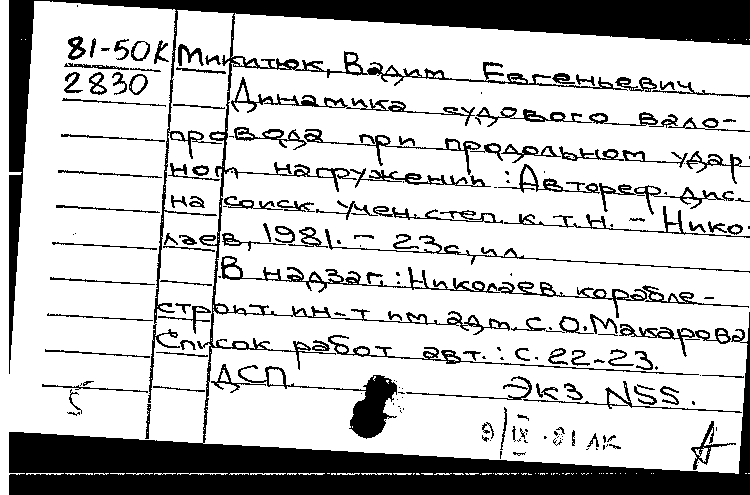 81-50К Микитюк, Вадим Евгеньевич.
2830
Динамика судового вало-
провода при продольном удар-
ном нагружении : Автореф. дис.
на соиск. учен. степ. к. т. н. - Нико-
лаев, 1981. - 23с, ил.
В надзаг. : Николаев. корабле-
строит. ин-т им. адм. С. О. Макарова
Список работ авт. : с. 22-23.
ДСП. Экз. N55.
5 9/IX · 81 ЛК